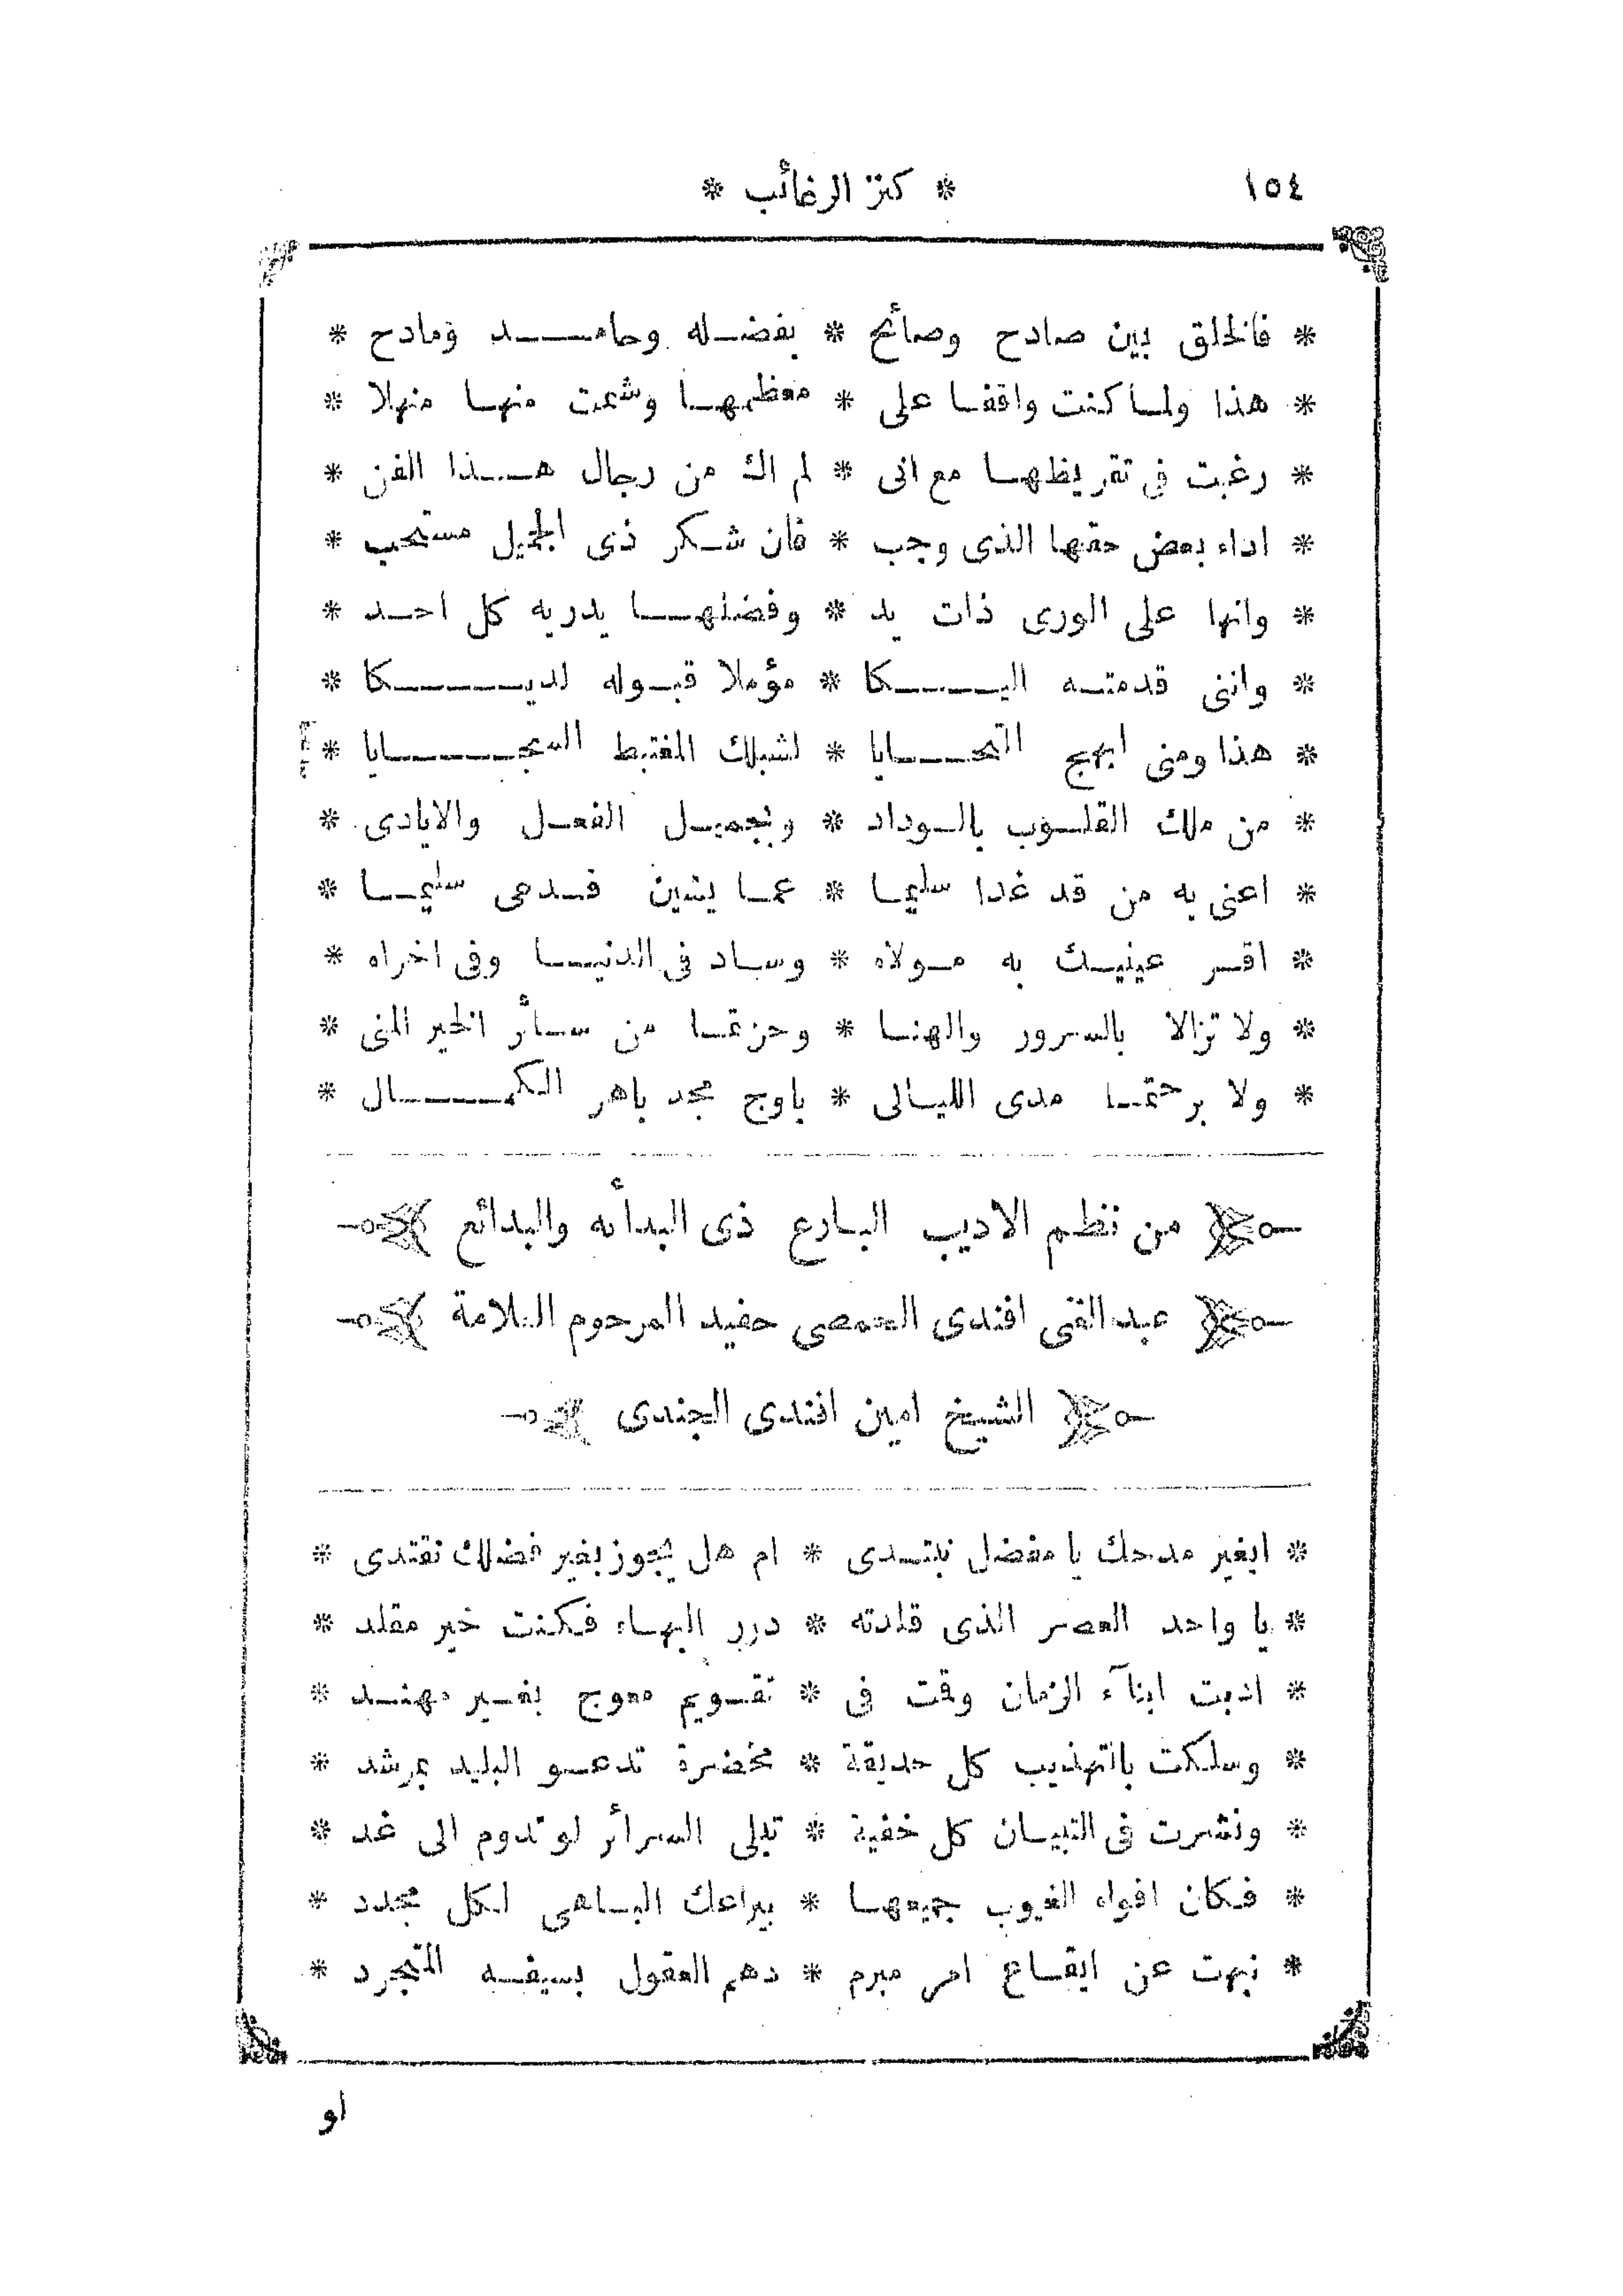 ١٥٤ * كنز الرغائب *
* فالخلق بين صادح وصائح * بفضله وحامد ومادح *
* هذا ولما كنت واقفا على * معظمها وشمت منها منهلا *
* رغبت فى تقريظها مع انى * لم اك من رجال هذا الفن *
* اداء بعض حقها الذى وجب * فان شكر ذى الجميل مستحب *
* وانها على الورى ذات يد * وفضلها يدريه كل احد *
* واننى قدمته اليكا * مؤملا قبوله لديكا *
* هذا ومنى ابهج التحايا * لشبلك المغتبط السجايا *
* من ملك القلوب بالوداد * وبجميل الفعل والايادى *
* اعنى به من قد غدا سليما * عما يشين فدعى سليما *
* اقر عينيك به مولاه * وساد فى الدنيا وفى اخراه *
* ولا تزالا بالسرور والهنا * وحزتما من سائر الخير المنى *
* ولا برحتما مدى الليالى * باوج مجد باهر الكمال *
من نظم الاديب البارع ذى البدائه والبدائع
عبد الغنى افندى الحمصى حفيد المرحوم العلامة
الشيخ امين افندى الجندى
* ابغير مدحك يا مفضل نبتدى * ام هل يجوز بغير فضلك نقتدى *
* يا واحد العصر الذى قلدته * درر البهاء فكنت خير مقلد *
* ادبت ابنآء الزمان وقت فى * تقويم معوج بغير مهند *
* وسلكت بالتهذيب كل حديقة * مخضرة تدعو البليد بمرشد *
* ونشرت فى التبيان كل خفية * تبلى السرائر لو تدوم الى غد *
* فكان افواه الغيوب جميعها * بيراعك الباهى لكل مجدد *
* نبهت عن ايقاع امر مبرم * دهم العقول بسيفه المتجرد *
او